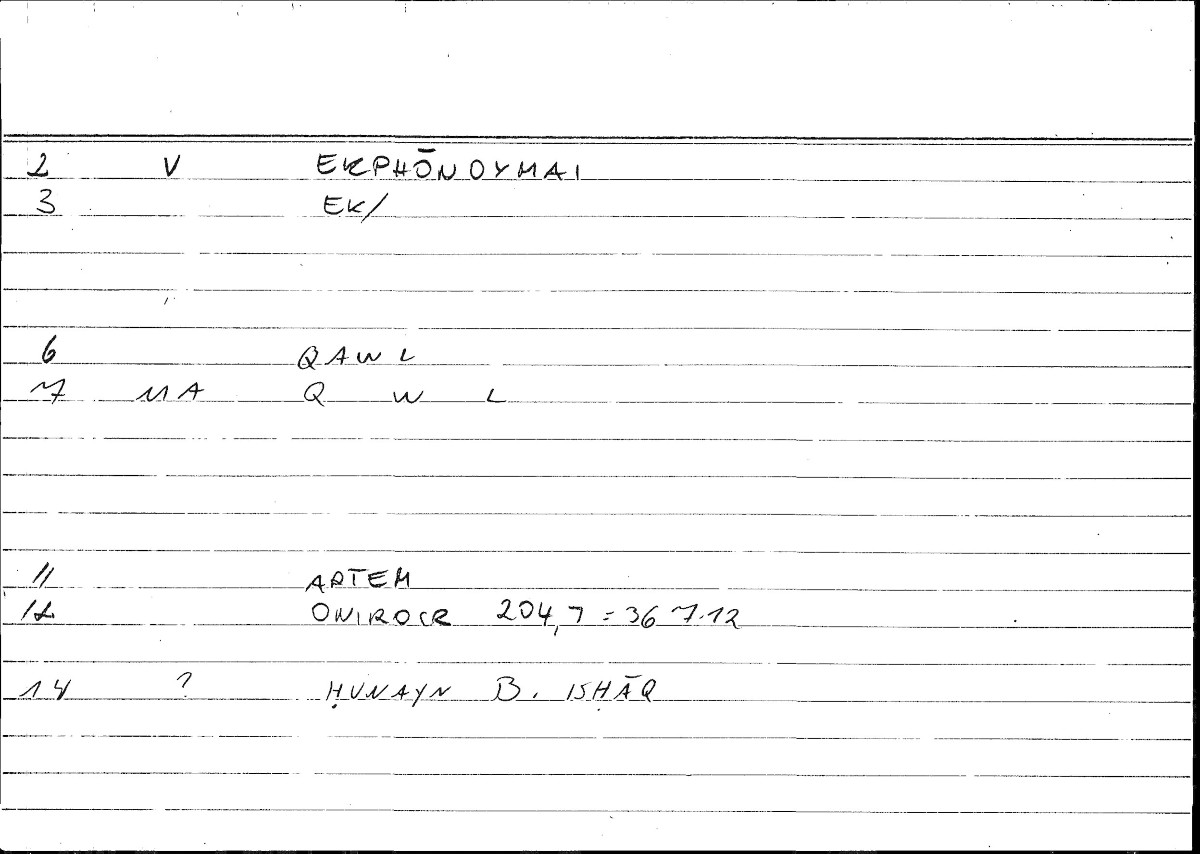 2 V EKPHŌNOYMAI
3 EK/
6 QAWL
7 MA Q W L
11 ARTEM
12 ONIROCR 204,7 = 367.12
14 ? ḤUNAYN B. ISḤĀQ